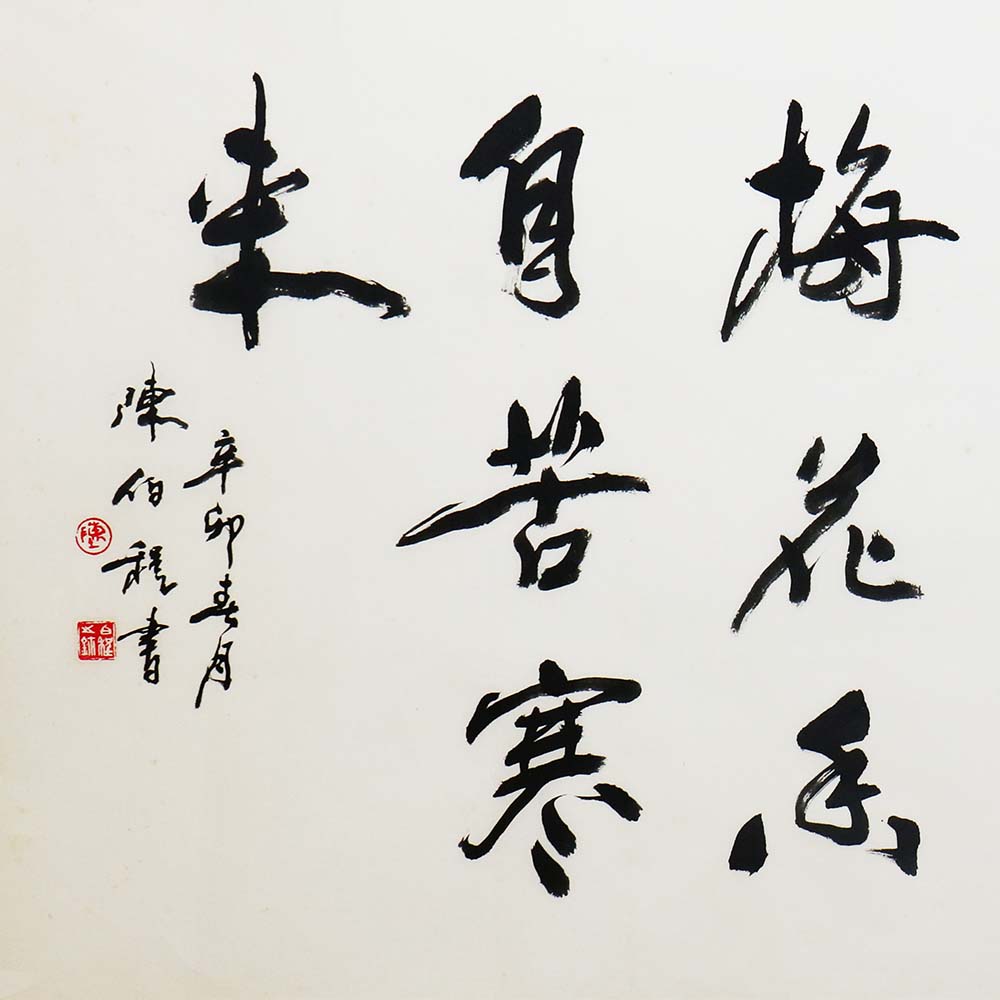 梅花香
自苦寒
来
辛卯春月
陳伯程書
陳